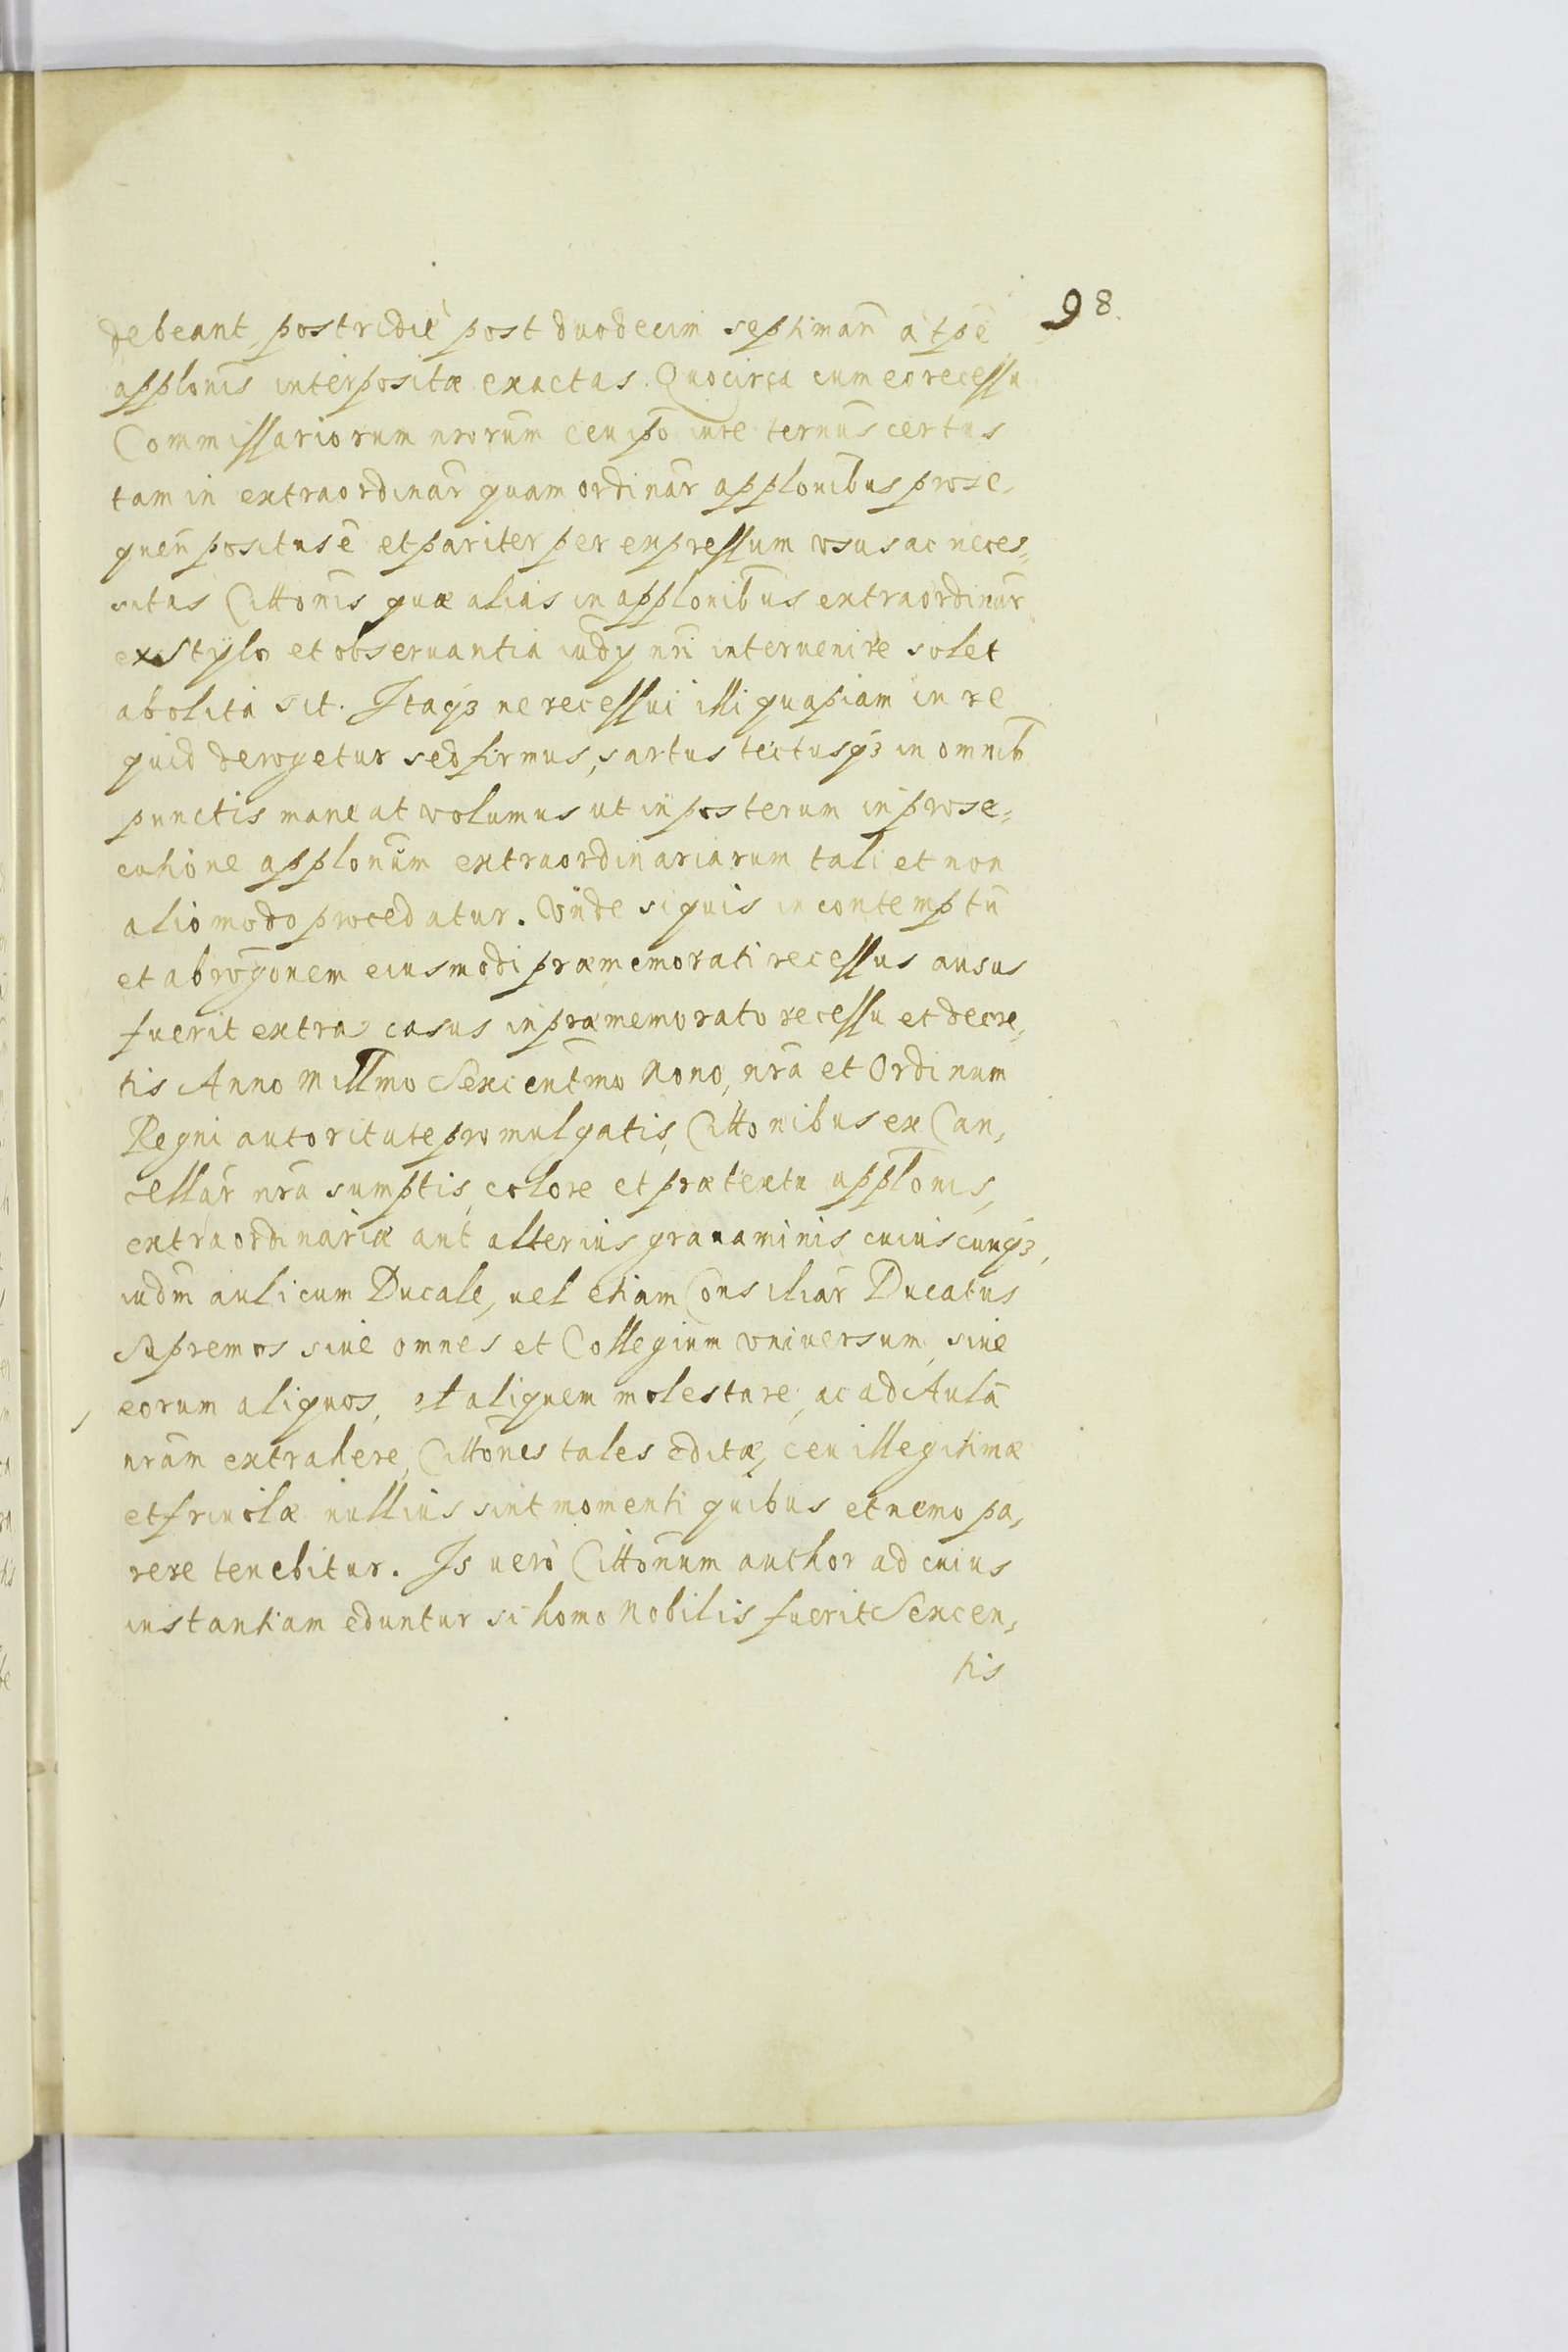 98.
debeant, postridie post duodecim septimañ à tpē
applōnis interpositæ exactas. Quocirca cum eo recessu
Commissariorum nrorum ceu ipō iure ternus certus
tam in extraordinar quam ordinar applonibus prose-
queñ positus ē et pariter per expressum vsus ac neces=
sitas Cittonis quæ alias in applonibus extraordinar
ex stylo et obseruantia iudy nri interuenire solet
abolita sit. Itaqꝫ ne recessui illi quapiam in re
quid derogetur sed firmus, sartus tectusqꝫ in omnib
punctis maneat volumus ut in posterum in prose=
cutione applonum extraordinariarum tali et non
alio modo procedatur. Vnde siquis in contemptū
et abrogonem eiusmodi præmemorati recessus ausus
fuerit extra casus in præmemorato recessu et decre,
tis Anno Millmo Sexcentmo Nono, nra et Ordinum
Regni autoritate promulgatis, Cittonibus ex Can,
cellar nra sumptis, colore et prætextu applonis,
extraordinariæ aut alterius grauaminis cuiuscunqꝫ,
iudm aulicum Ducale, uel etiam Consiliar Ducatus
Supremos siue omnes et Collegium vniuersum, siue
eorum aliquos, et aliquem molestare, ac ad Aulā
nram extrahere, Cittones tales editæ, ceu illegitimæ
et friuolæ nullius sint momenti quibus et nemo pa,
rere tenebitur. Is uerò Cittonum author ad cuius
instantiam eduntur si homo Nobilis fuerit Sexcen,
tis